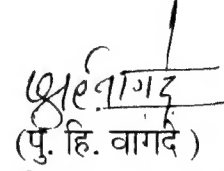 (पु. हि. वागदे)